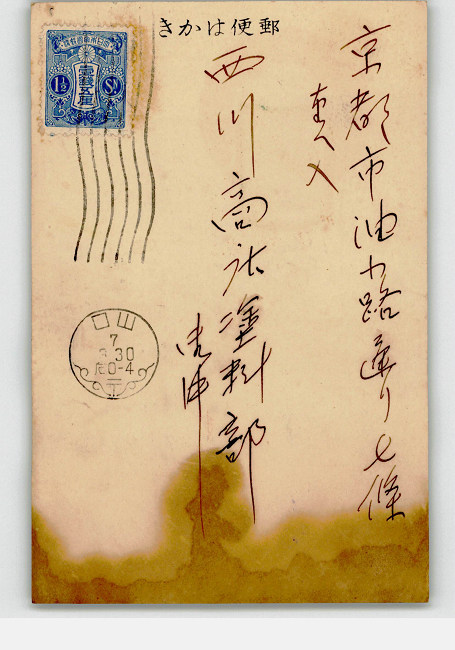 郵便はかき
大日本帝國郵便
壹錢五厘
1½ Sn
京都市油小路通り七條
西川商社塗料部
御中
山口
7
3.30
后0-4